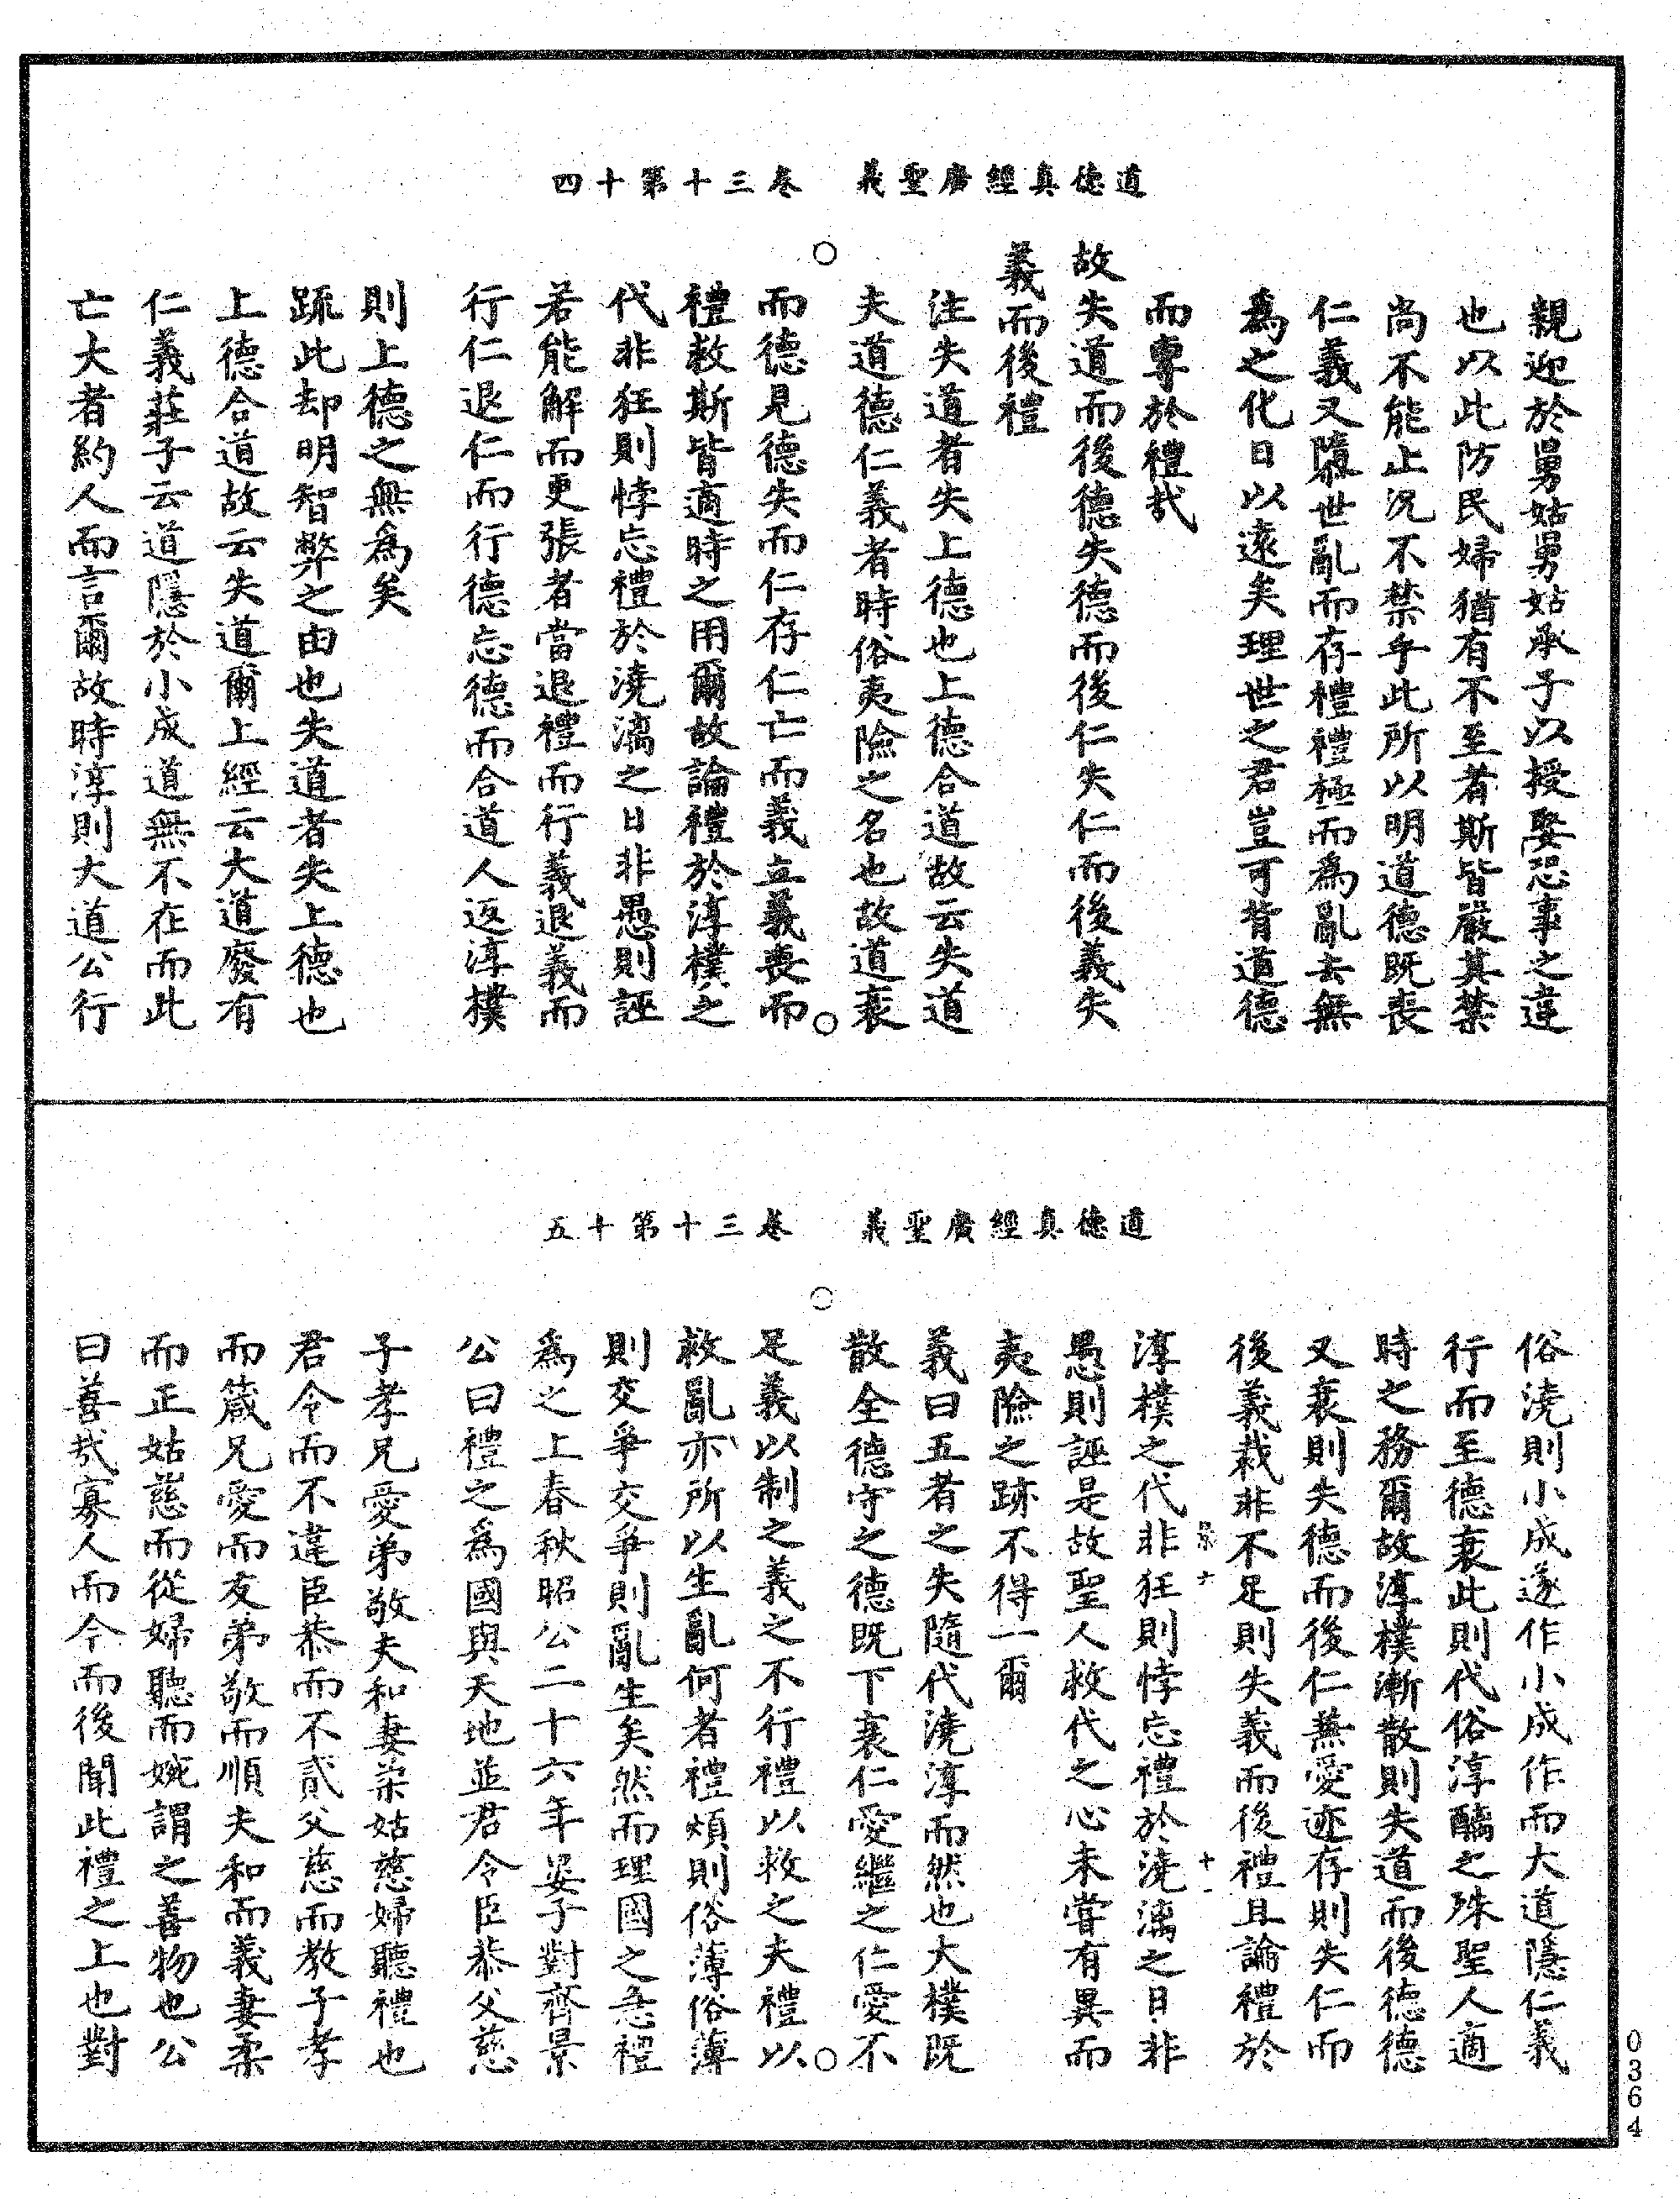 道德真經廣聖義　卷三十第十四
親迎於舅姑舅姑承子以授娶恐事之違
也以此防民婦猶有不至者斯皆嚴其禁
尚不能止況不禁乎此所以明道德既喪
仁義又隳世亂而存禮禮極而為亂去無
為之化日以遠矣理世之君豈可背道德
而專於禮哉
故失道而後德失德而後仁失仁而後義失
義而後禮
注失道者失上德也上德合道故云失道
夫道德仁義者時俗夷險之名也故道衰
而德見德失而仁存仁亡而義立義喪而
禮救斯皆適時之用爾故論禮於淳樸之
代非狂則悖忘禮於澆漓之日非愚則誣
若能解而更張者當退禮而行義退義而
行仁退仁而行德忘德而合道人返淳樸
則上德之無為矣
疏此却明智弊之由也失道者失上德也
上德合道故云失道爾上經云大道廢有
仁義莊子云道隱於小成道無不在而此
亡大者約人而言爾故時淳則大道公行
道德真經廣聖義　卷三十第十五
俗澆則小成遂作小成作而大道隱仁義
行而至德衰此則代俗淳醨之殊聖人適
時之務爾故淳樸漸散則失道而後德德
又衰則失德而後仁蕪愛迹存則失仁而
後義裁非不足則失義而後禮且論禮於
淳樸之代非狂則悖忘禮於澆漓之日非
愚則誣是故聖人救代之心未嘗有異而
夷險之跡不得一爾
義曰五者之失隨代澆淳而然也大樸既
散全德守之德既下衰仁愛繼之仁愛不
足義以制之義之不行禮以救之夫禮以
救亂亦所以生亂何者禮煩則俗薄俗薄
則交爭交爭則亂生矣然而理國之急禮
為之上春秋昭公二十六年晏子對齊景
公曰禮之為國與天地並君令臣恭父慈
子孝兄愛弟敬夫和妻柔姑慈婦聽禮也
君令而不違臣恭而不貳父慈而教子孝
而箴兄愛而友弟敬而順夫和而義妻柔
而正姑慈而從婦聽而婉謂之善物也公
曰善哉寡人而今而後聞此禮之上也對
0364